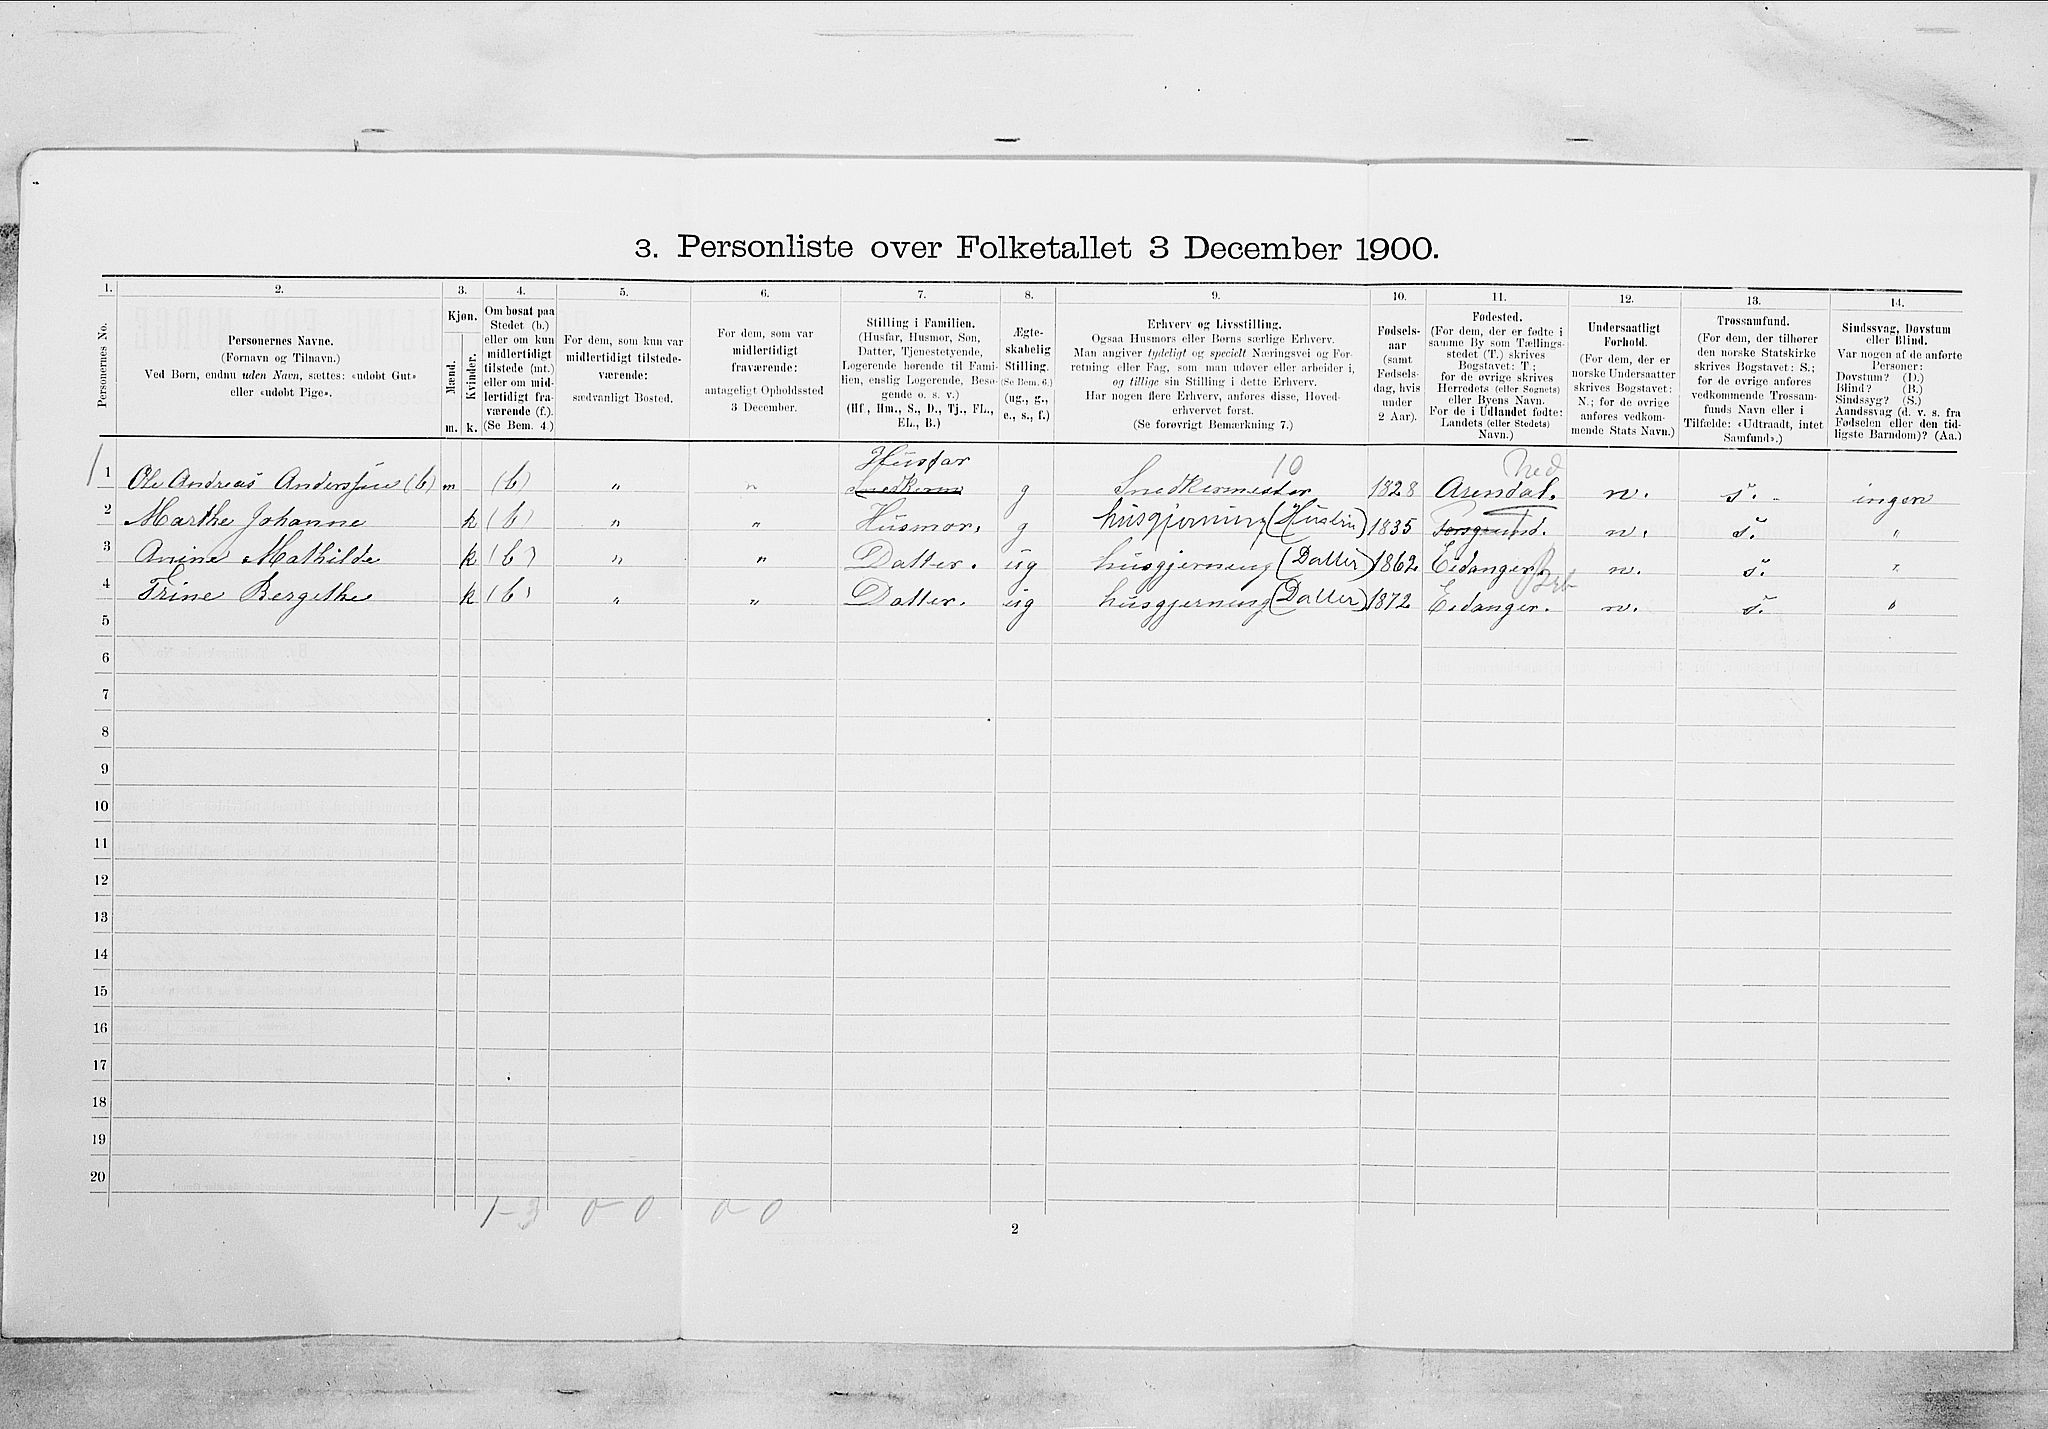 3. Personliste over Folketallet 3 December 1900.
1. 2. 3. 4. 5. 6. 7. 8. 9. 10. 11. 12. 13. 14.
Personernes No.
Personernes Navne.
(Fornavn og Tilnavn.)
Ved Børn, endnu uden Navn, sættes: «udøbt Gut»
eller «udøbt Pige».
Kjøn.
Mænd.
Kvinder.
m. k.
Om bosat paa
Stedet (b.)
eller om kun
midlertidigt
tilstede (mt.)
eller om mid-
lertidigt fra-
værende (f.).
(Se Bem. 4.)
For dem, som kun var
midlertidigt tilstede-
værende:
sædvanligt Bosted.
For dem, som var
midlertidigt
fraværende:
antageligt Opholdssted
3 December.
Stilling i Familien.
(Husfar, Husmor, Søn,
Datter, Tjenestetyende,
Logerende hørende til Fami-
lien, enslig Logerende, Besø-
gende o. s. v.)
(Hf., Hm., S., D., Tj., FL.,
EL., B.)
Ægte-
skabelig
Stilling.
(Se Bem. 6.)
(ug., g.,
e., s., f.)
Erhverv og Livsstilling.
Ogsaa Husmors eller Børns særlige Erhverv.
Man angiver tydeligt og specielt Næringsvei og For-
retning eller Fag, som man udøver eller arbeider i,
og tillige sin Stilling i dette Erhverv.
Har nogen flere Erhverv, anføres disse, Hoved-
erhvervet først.
(Se forøvrigt Bemærkning 7.)
Fødsels-
aar
(samt
Fødsels-
dag, hvis
under
2 Aar).
Fødested.
(For dem, der er fødte i
samme By som Tællings-
stedet (T.) skrives
Bogstavet: T.;
for de øvrige skrives
Herredets (eller Sognets)
eller Byens Navn.
For de i Udlandet fødte:
Landets (eller Stedets)
Navn.)
Undersaatligt
Forhold.
(For dem, der er
norske Undersaatter
skrives Bogstavet:
N.; for de øvrige
anføres vedkom-
mende Stats Navn.)
Trossamfund.
(For dem, der tilhører
den norske Statskirke
skrives Bogstavet: S.;
for de øvrige anføres
vedkommende Trossam-
funds Navn eller i
Tilfælde: «Udtraadt, intet
Samfund».)
Sindssvag, Døvstum
eller Blind.
Var nogen af de anførte
Personer:
Døvstum? (D.)
Blind? (B.)
Sindssyg? (S.)
Aandssvag (d. v. s. fra
Fødselen eller den tid-
ligste Barndom)? (Aa.)
Husfar 10 Ned
1 Ole Andreas Anderssen (b) m (b) " " Snedkerm g Snedkermester 1828 Arendal. n. s. ingen
2 Marthe Johanne k (b) " " Husmor. g husgjerning (Hustru) 1835 Porsgrund. n. s. "
3 Anine Mathilde k (b) " " Datter. ug husgjerning (Datter) 1862 Eidanger. n. s. "
4 Trine Bergithe k (b) " " Datter. ug husgjerning (Datter) 1872 Eidanger. n. s. "
5
6
7
8
9
10
11
12
13
14
15
16
17
18
19
20
1-3 0-0 0-0
2